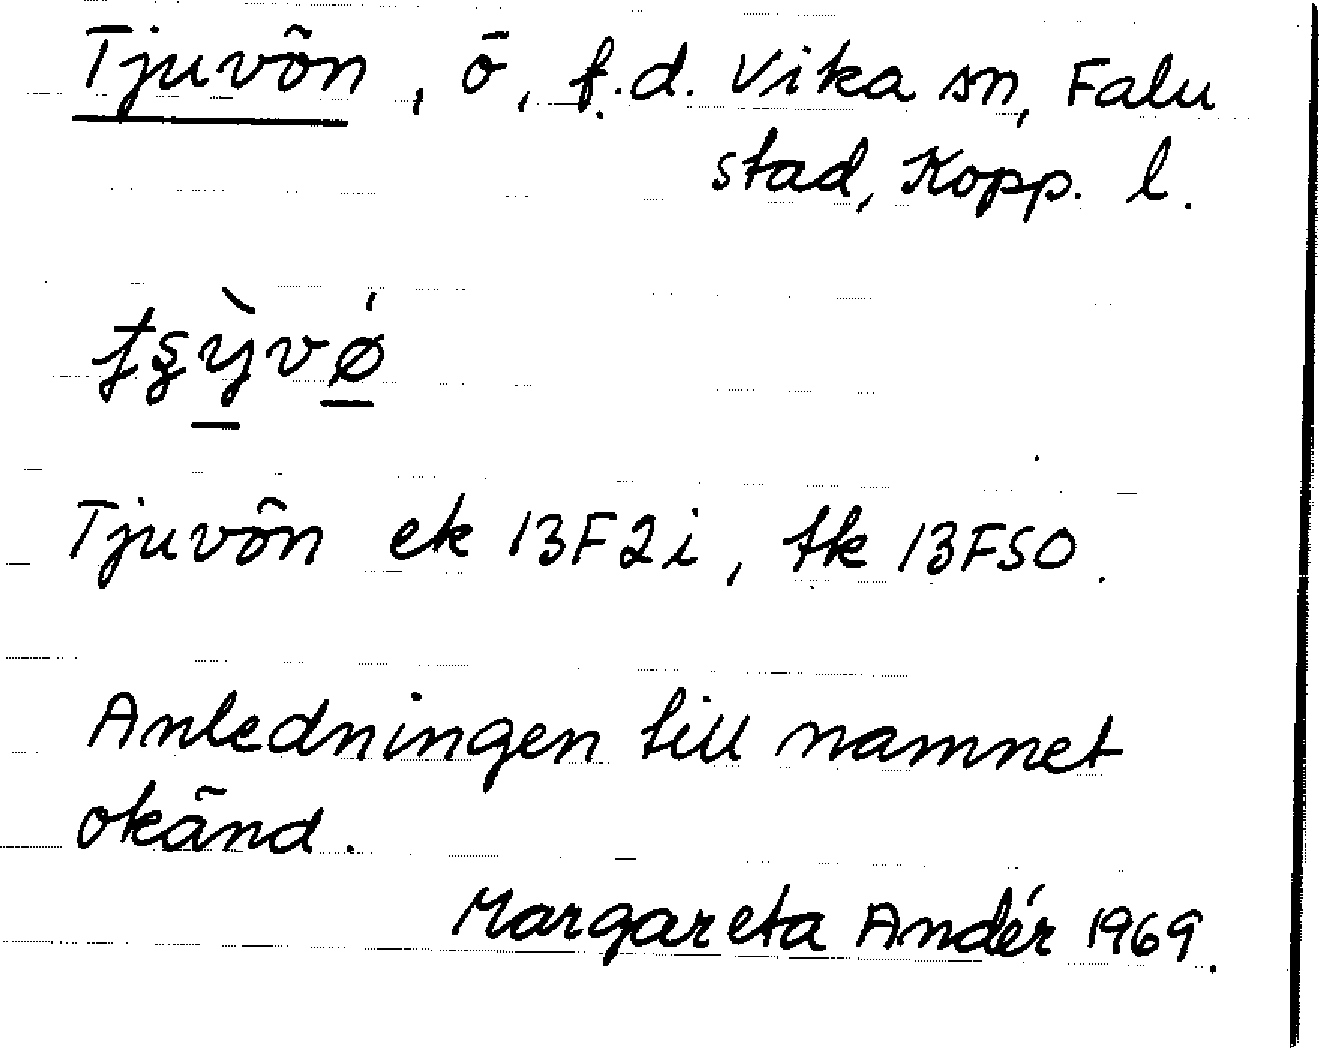 Tjuvön, ö, f.d. Vika sn, Falu
stad, Kopp. l.
Tjuvön ek 13F2i, tk 13FSO.
Anledningen till namnet
okänd.
Margareta Andér 1969.